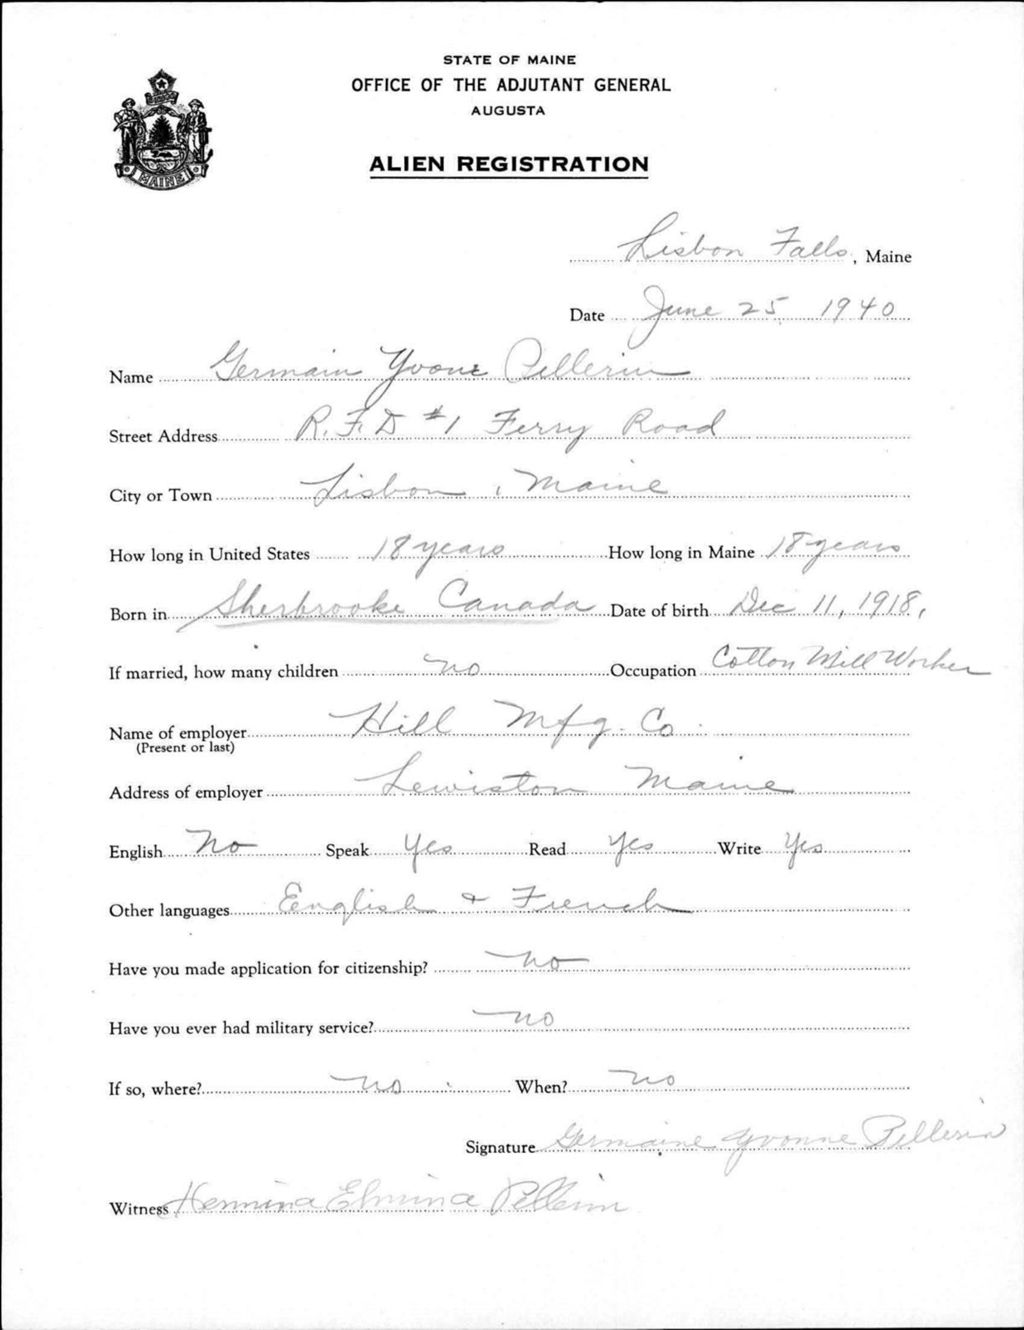 STATE OF MAINE
OFFICE OF THE ADJUTANT GENERAL
AUGUSTA
MAINE
ALIEN REGISTRATION
Lisbon Falls, Maine
Date June 25, 1940
Name Germain Yvone Pellerin
Street Address R.F.D #1 Ferry Road
City or Town Lisbon, Maine
How long in United States 18 years How long in Maine 18 years
Born in Sherbrooke Canada Date of birth Dec 11, 1918,
If married, how many children no Occupation Cotton Mill Worker
Name of employer Hill Mfg. Co
(Present or last)
Address of employer Lewiston Maine
English No Speak Yes Read Yes Write Yes
Other languages English & French
Have you made application for citizenship? no
Have you ever had military service? no
If so, where? no When? no
Signature Germaine Yvonne Pellerin
Witness Hermina Elmina Pellerin